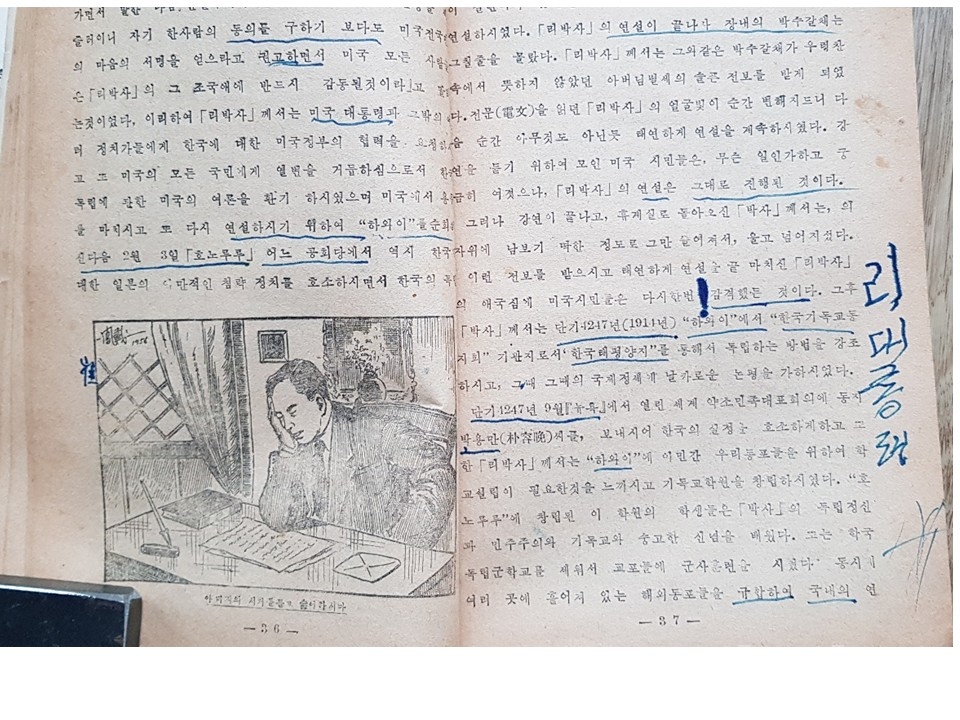 슬러이니 자기 한사람의 동의를 구하기 보다도 미국전국
의 마음의 서명을 얻으라고 권고하면서 미국 모든 사람
은「리박사」의 그 조국애에 반드시 감동된것이라」고
는것이였다, 이리하여「리박사」께서는 미국 대통령과 그밖의
러 정치가들에게 한국에 대한 미국정부의 협력을
고 또 미국의 모든 국민에게 열변을 거듭하심으로서
독립에 관한 미국의 여론을 환기 하시였으며 미국에서
를 마치시고 또 다시 연설하시기 위하여 “하와이”를순회
신다음 2월 3일「호노루루」어느 공회당에서 역시 한국
대한 일본의 야만적인 침략 정치를 호소하시면서 한국의
1956
—36—
연설하시였다.「리박사의 연설이 끝나다 장내의 박수갈채는
그칠줄을 몰랐다.「리박사」께서는 그와같은 박수갈채가 우렁찬
속에서 뜻하지 않았던 아버님별세의 슬픈 전보를 받게 되였
다. 전문(電文)을 읽던「리박사」의 얼굴빛이 순간 변해지드니 다
음 순간 아무것도 아닌듯 태연하게 연설을 계속하시였다. 강
연을 듣기 위하여 모인 미국 시민들은, 무슨 일인가하고 궁
금히 여겼으나,「리박사」의 연설은 그대로 진행된 것이다.
그러나 강연이 끝나고, 휴게실로 돌아오신「박사」께서는, 의
자위에 남보기 딱한 정도로 그만 늘어져서, 울고 넘어지셨다.
이런 전보를 받으시고 태연하게 연설을 끝 마치신「리박사」
의 애국심에 미국시민들은 다시한번 감격했든 것이다. 그후
「박사」께서는 단기4247년(1914년) “하와이”에서 “한국기독교동
지회” 기관지로서“한국태평양지”를 통해서 독립하는 방법을 강조
하시고, 그때 그때의 국제정세에 날카로운 논평을 가하시였다.
단기4247년 9월『뉴욕』에서 열린 세계 약소민족대표회의에 동지
박용만(朴容晩)씨를, 보내시어 한국의 실정을 호소하게하고 또
한「리박사」께서는 “하와이”에 이민간 우리동포들을 위하여 학
교설립이 필요한것을 느끼시고 기독교학원을 창립하시였다. “호
노루루”에 창립된 이 학원의 학생들은「박사」의 독립정신
과 민주주의와 기독교와 숭고한 신념을 배웠다. 또는 한국
독립군학교를 세워서 교포들에 군사훈련을 시켰다 동시에
여러 곳에 흩어져 있는 해외동포들을 규합하여 국내의 연
—37—
리대통령